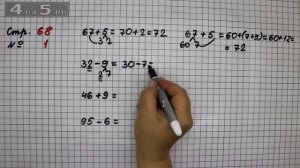 4-5.RU
Стр. 68
№ 1
67+5=70+2=72
3 2
67+5=60+(7+5)=60+12=
60 7
=72
32-9=30-7=
2 7
46+9=
95-6=